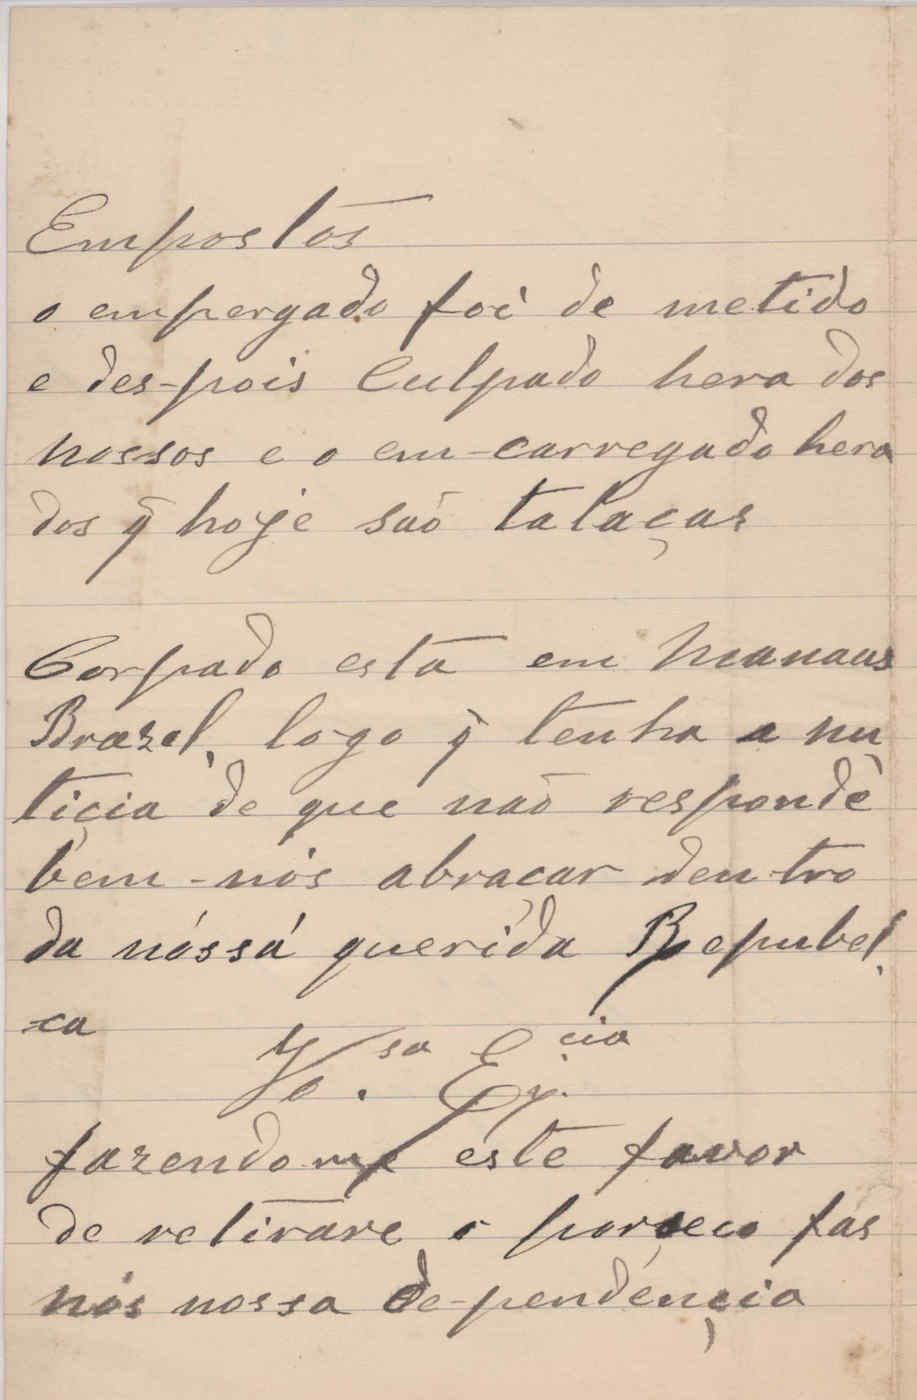 Empostos
o empergado foi de metido
e des-pois Culpado hera dos
nossos e o em-carregado hera
dos q̃ hoje são talaças
Corpado está em Manaus
Brazel, logo q̃ tenha a nu
ticia de que não respondè
bem-nós abracar dentro
da nóssá querida Republ
ca
Vo.sa Ex.cia
fazendo me este favor
de retirare o porseco fás
nós nossa de-pendencia